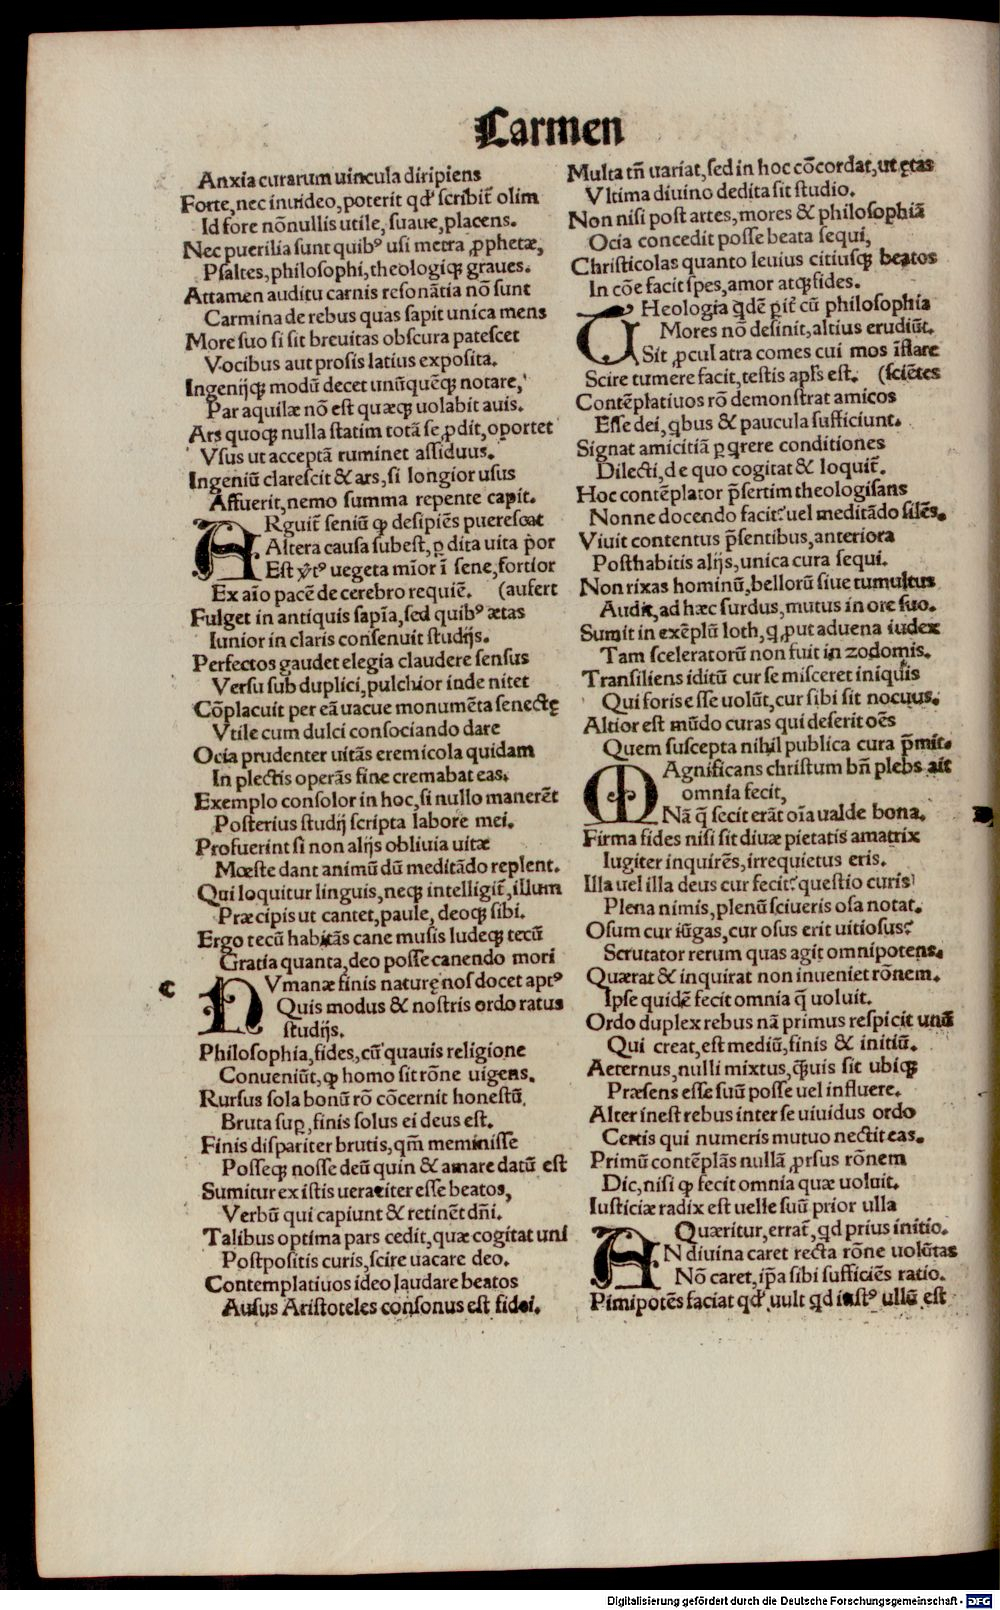 Carmen
Anxia curarum uincula diripiens
Forte, nec inuideo, poterit qđ scribit̃ olim
Id fore nõnullis utile, suaue, placens.
Nec puerilia sunt quibꝰ usi metra ꝓphetæ,
Psaltes, philosophi, theologiqꝫ graues.
Attamen auditu carnis resonãtia nõ sunt
Carmina de rebus quas sapit unica mens
More suo si sit breuitas obscura patescet
Vocibus aut prosis latius exposita.
Ingenijqꝫ modũ decet unũquẽqꝫ notare,
Par aquilæ nõ est quæqꝫ uolabit auis.
Ars quoqꝫ nulla statim totã se ꝓdit, oportet
Vsus ut acceptã ruminet assiduus.
Ingeniũ clarescit & ars, si longior usus
Affuerit, nemo summa repente capit.
ARguit̃ seniũ ꝙ desipiẽs puerescat
Altera causa subest, ꝑdita uita prior
Est uegeta mĩor ĩ sene, fortior
Ex aĩo pacẽ de cerebro requiẽ. (aufert
Fulget in antiquis sapĩa, sed quibꝰ ætas
Iunior in claris consenuit studijs.
Perfectos gaudet elegia claudere sensus
Versu sub duplici, pulchior inde nitet
Cõplacuit per eã uacue monumẽta senectę
Vtile cum dulci consociando dare
Ocia prudenter uitãs eremicola quidam
In plectis operãs fine cremabat eas.
Exemplo consolor in hoc, si nullo manerẽt
Posterius studij scripta labore mei.
Profuerint si non alijs obliuia uitæ
Mœste dant animũ dũ meditãdo replent.
Qui loquitur linguis, neqꝫ intelligit̃, illum
Præcipis ut cantet, paule, deoqꝫ sibi.
Ergo tecũ habitãs cane musis ludeqꝫ tecũ
Gratia quanta, deo posse canendo mori
C
HVmanæ finis naturę nos docet aptꝰ
Quis modus & nostris ordo ratus
studijs.
Philosophia, fides, cũ quauis religione
Conueniũt, ꝙ homo sit rõne uigens.
Rursus sola bonũ rõ cõcernit honestũ,
Bruta suꝑ, finis solus ei deus est.
Finis dispariter brutis, qm̃ meminisse
Posseqꝫ nosse deũ quin & amare datũ est
Sumitur ex istis ueraciter esse beatos,
Verbũ qui capiunt & retinẽt dñi.
Talibus optima pars cedit, quæ cogitat uni
Postpositis curis, scire uacare deo.
Contemplatiuos ideo laudare beatos
Ausus Aristoteles consonus est fidei.
Multa tñ uariat, sed in hoc cõcordat, ut ętas
Vltima diuino dedita sit studio.
Non nisi post artes, mores & philosophiã
Ocia concedit posse beata sequi,
Christicolas quanto leuius citiusqꝫ beatos
In cõe facit spes, amor atqꝫ fides.
THeologia qdẽ ꝑit̃ cũ philosophia
Mores nõ desinit, altius erudiũt.
Sit ꝓcul atra comes cui mos ĩflare
Scire tumere facit, testis apĺs est. (sciẽtes
Contẽplatiuos rõ demonstrat amicos
Esse dei, qbus & paucula sufficiunt.
Signat amicitiã ꝑ qrere conditiones
Dilecti, de quo cogitat & loquit̃.
Hoc contẽplator p̃sertim theologisans
Nonne docendo facit? uel meditãdo silẽs.
Viuit contentus p̃sentibus, anteriora
Posthabitis alijs, unica cura sequi.
Non rixas hominũ, bellorũ siue tumultus
Audit, ad hæc surdus, mutus in ore suo.
Sumit in exẽplũ loth, q ꝓut aduena iudex
Tam sceleratorũ non fuit in zodomis.
Transiliens iditũ cur se misceret iniquis
Qui foris esse uolũt, cur sibi sit nocuus.
Altior est mũdo curas qui deserit oẽs
Quem suscepta nihil publica cura p̃mit.
MAgnificans christum bñ plebs ait
omnia fecit,
Nã q̃ fecit erãt oĩa ualde bona.
Firma fides nisi sit diuæ pietatis amatrix
Iugiter inquirẽs, irrequietus eris.
Illa uel illa deus cur fecit? questio curis
Plena nimis, plenũ sciueris osa notat.
Osum cur iũgas, cur osus erit uitiosus?
Scrutator rerum quas agit omnipotens.
Quærat & inquirat non inueniet rõnem.
Ipse quidẽ fecit omnia q̃ uoluit.
Ordo duplex rebus nã primus respicit unũ
Qui creat, est mediũ, finis & initiũ.
Aeternus, nulli mixtus, q̃uis sit ubiqꝫ
Præsens esse suũ posse uel influere.
Alter inest rebus inter se uiuidus ordo
Certis qui numeris mutuo nectit eas.
Primũ contẽplãs nullã ꝓrsus rõnem
Dic, nisi ꝙ fecit omnia quæ uoluit.
Iusticiæ radix est uelle suũ prior ulla
Quæritur, errat̃, qd prius initio.
AN diuina caret recta rõne uolũtas
Nõ caret, ip̃a sibi sufficiẽs ratio.
Pimipotẽs faciat qđ uult qd iustꝰ ullũ est
Digitalisierung gefördert durch die Deutsche Forschungsgemeinschaft - DFG